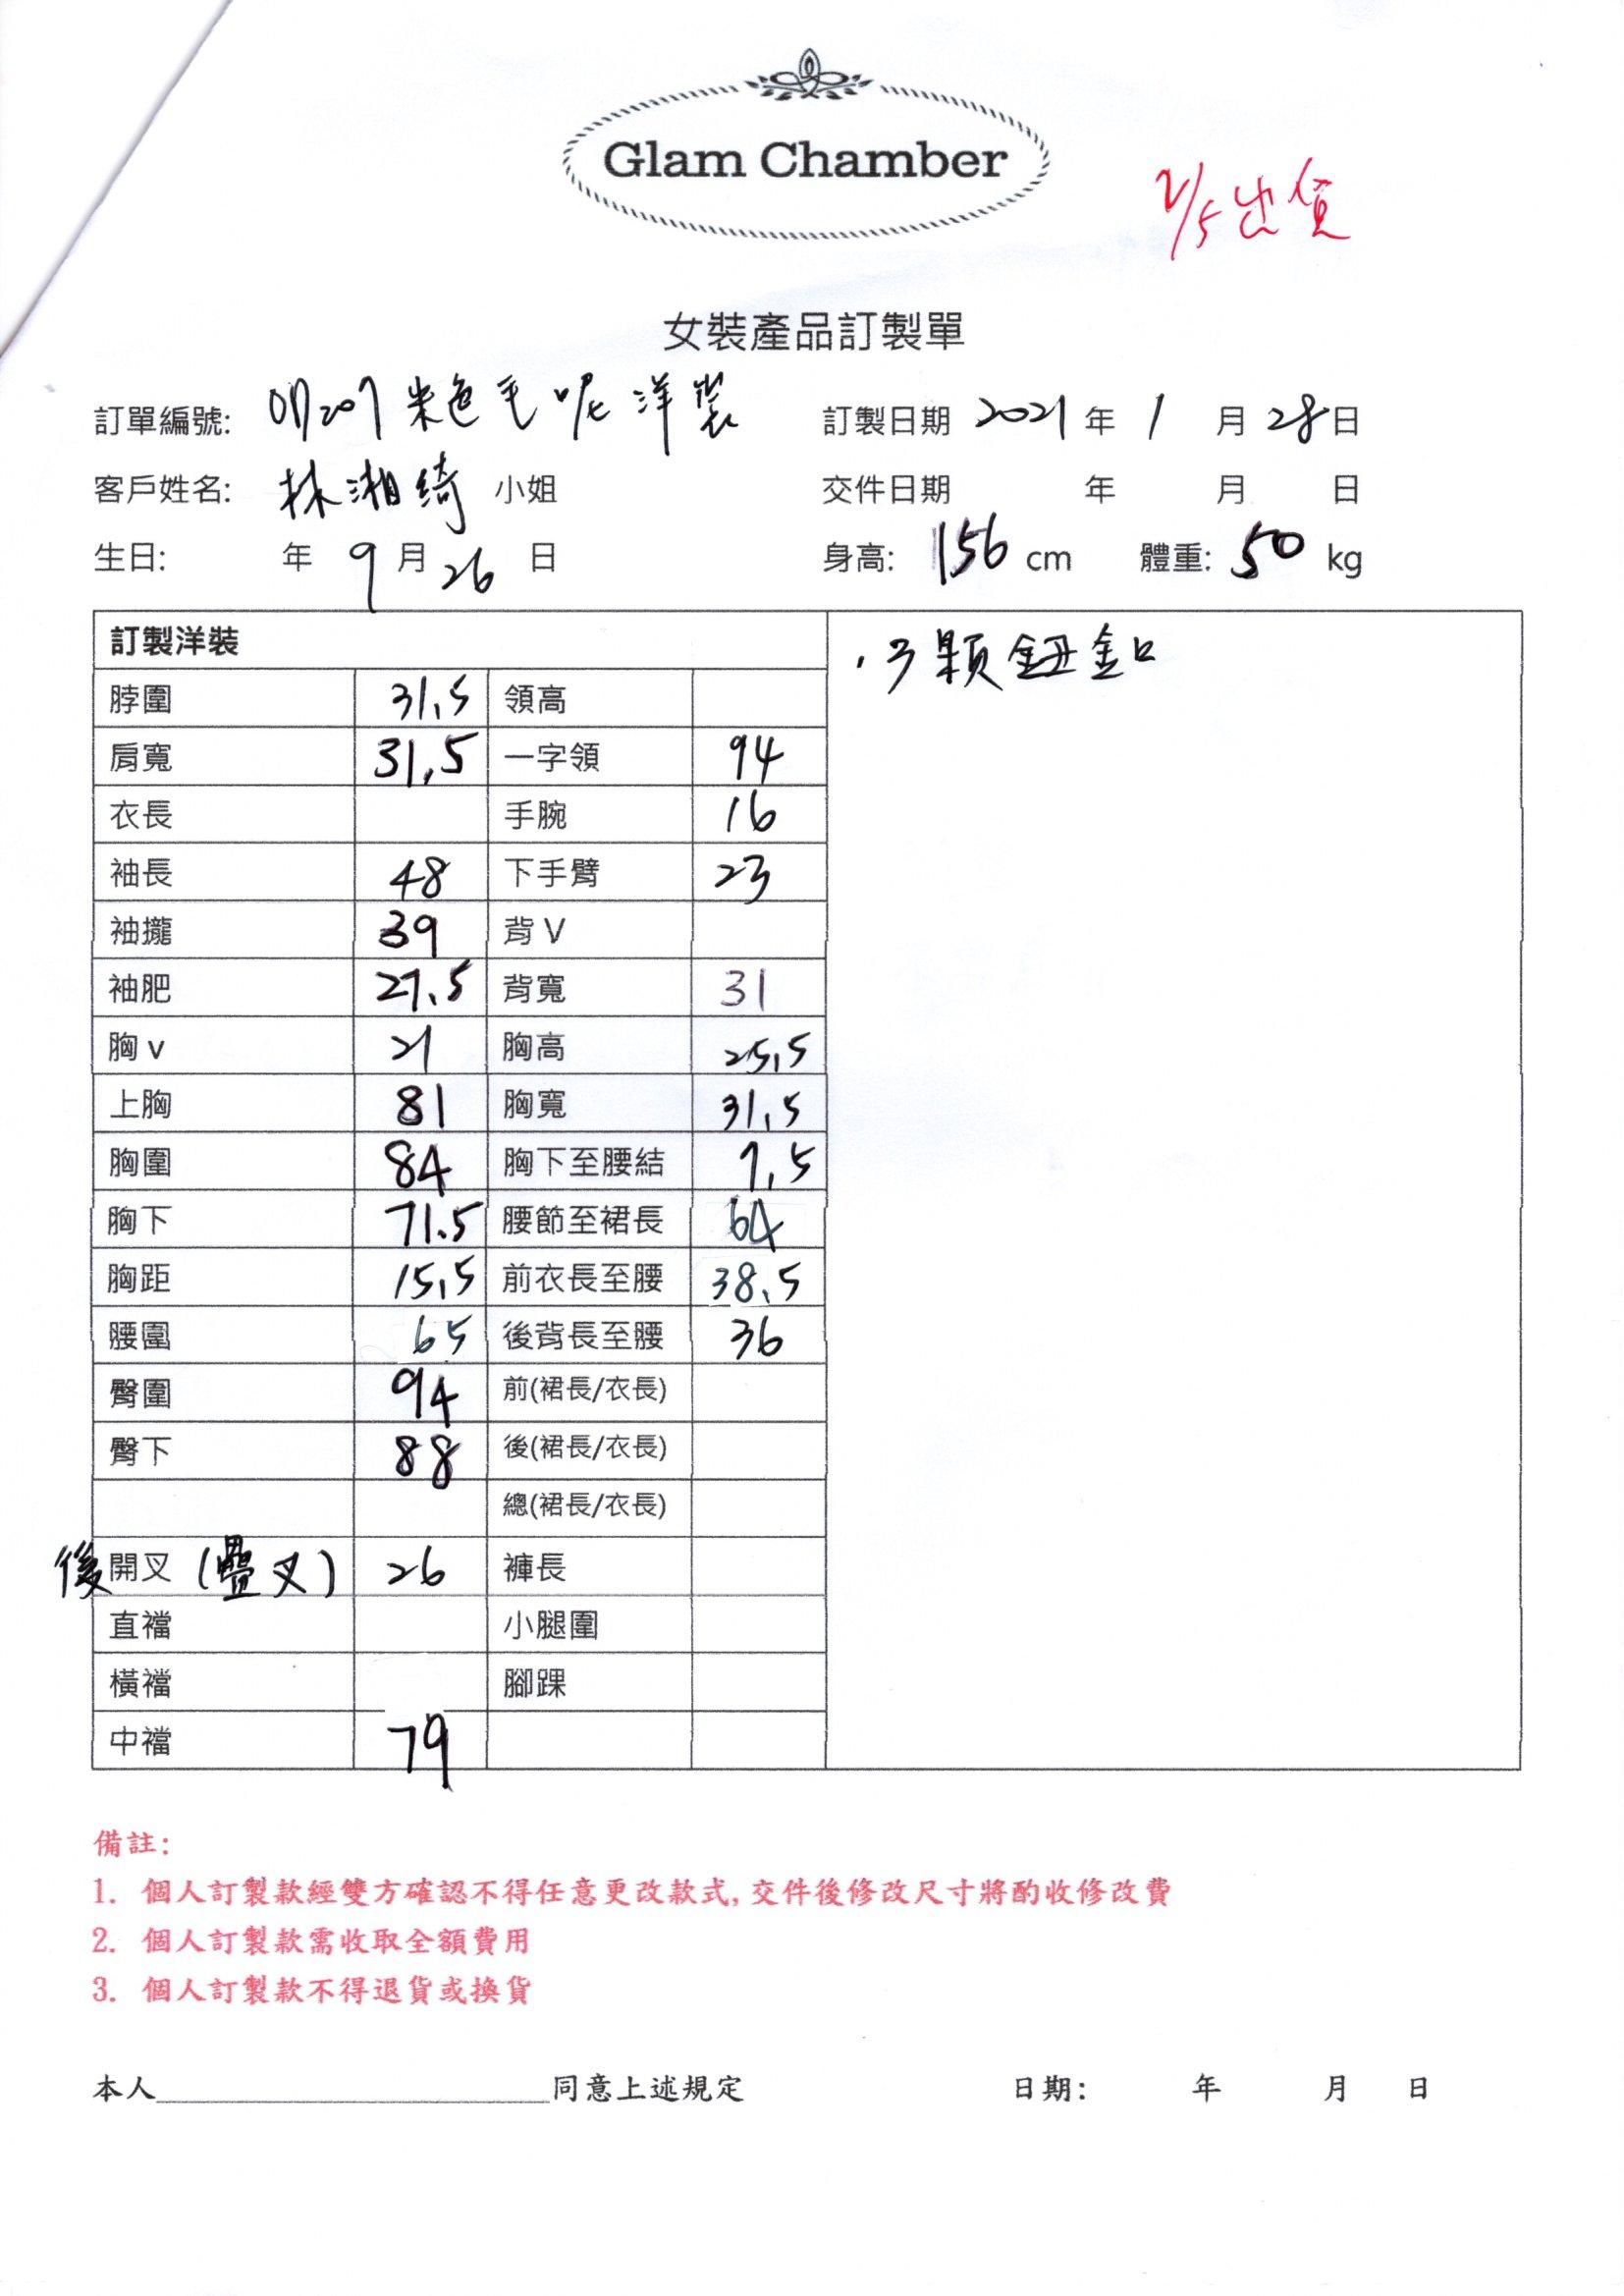 Glam Chamber
2/5出貨
女裝產品訂製單
訂單編號: 米色毛呢洋裝 訂製日期 2021 年 1 月 28 日
客戶姓名: 林湘綺 小姐 交件日期 年 月 日
生日: 年 9 月 26 日 身高: 156 cm 體重: 50 kg
訂製洋裝
·3顆鈕釦
脖圍 31.5 領高
肩寬 31.5 一字領 94
衣長 手腕 16
袖長 48 下手臂 23
袖攏 39 背 V
袖肥 27.5 背寬 31
胸 v 21 胸高 25.5
上胸 81 胸寬 31.5
胸圍 84 胸下至腰結 7.5
胸下 71.5 腰節至裙長 64
胸距 15.5 前衣長至腰 38.5
腰圍 65 後背長至腰 36
臀圍 94 前(裙長/衣長)
臀下 88 後(裙長/衣長)
總(裙長/衣長)
後開叉(疊叉) 26 褲長
直襠 小腿圍
橫襠 腳踝
中襠 79
備註:
1. 個人訂製款經雙方確認不得任意更改款式,交件後修改尺寸將酌收修改費
2. 個人訂製款需收取全額費用
3. 個人訂製款不得退貨或換貨
本人____________________同意上述規定 日期: 年 月 日